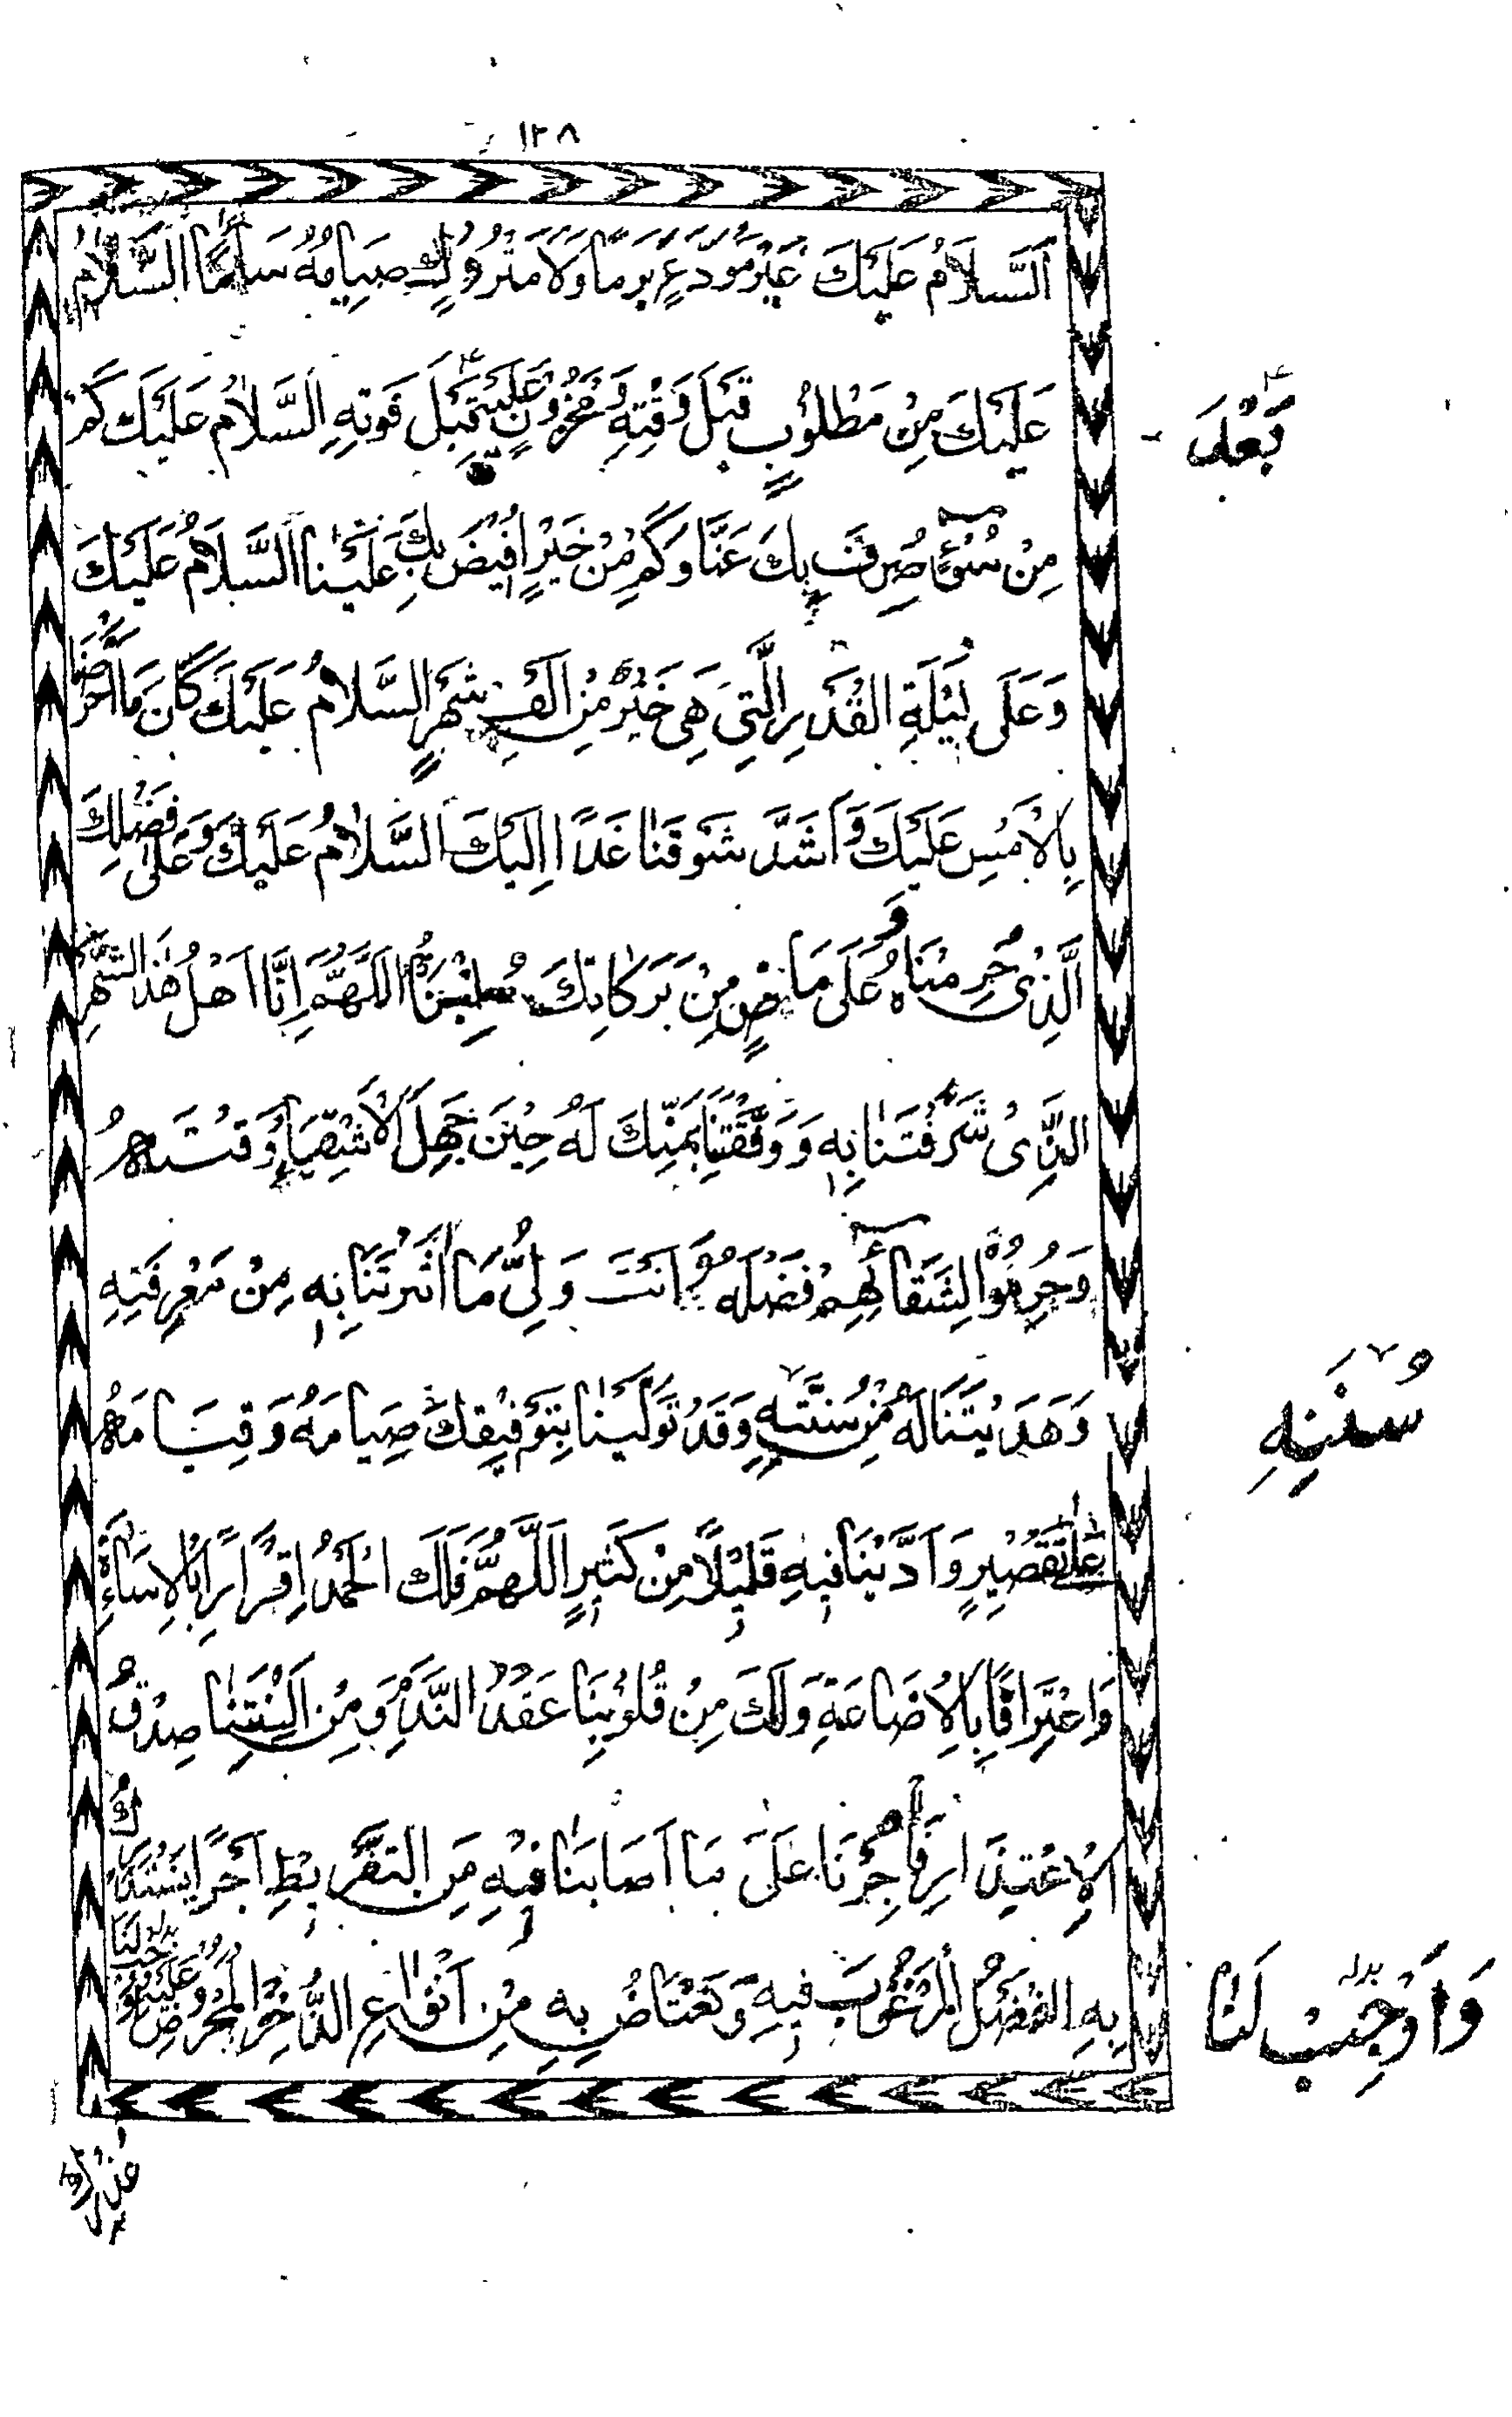 ١٢٨
اَلسَّلَامُ عَلَيْكَ غَيْرَ مُوَدَّعٍ بَرَمًا وَلَا مَتْرُوْكٍ صِيَامُهُ سَاَمًا اَلسَّلَامُ
عَلَيْكَ مِنْ مَطْلُوْبٍ قَبْلَ وَقْتِهِ وَمَحْزُوْنٍ عَلَيْهِ قَبْلَ فَوْتِهِ اَلسَّلَامُ عَلَيْكَ كَمْ
بَعْدَ
مِنْ سُوْءٍ صُرِفَ بِكَ عَنَّا وَكَمْ مِنْ خَيْرٍ اُفِيْضَ بِكَ عَلَيْنَا اَلسَّلَامُ عَلَيْكَ
وَعَلَى لَيْلَةِ الْقَدْرِ الَّتِيْ هِيَ خَيْرٌ مِنْ اَلْفِ شَهْرٍ اَلسَّلَامُ عَلَيْكَ كَانَ مَا اَحْرَصَنَا
بِالْاَمْسِ عَلَيْكَ وَاَشَدَّ شَوْقَنَا غَدًا اِلَيْكَ اَلسَّلَامُ عَلَيْكَ وَعَلَى فَضْلِكَ
الَّذِيْ حُرِمْنَاهُ وَعَلَى مَاضٍ مِنْ بَرَكَاتِكَ سُلِبْنَاهُ اَللّٰهُمَّ اِنَّا اَهْلُ هٰذَا الشَّهْرِ
الَّذِيْ شَرَّفْتَنَا بِهِ وَوَفَّقْتَنَا بِمَنِّكَ لَهُ حِيْنَ جَهِلَ الْاَشْقِيَاءُ وَقْتَهُ
وَحُرِمُوْا لِشَقَائِهِمْ فَضْلَهُ وَاَنْتَ وَلِيُّ مَا اٰثَرْتَنَا بِهِ مِنْ مَعْرِفَتِهِ
وَهَدَيْتَنَا لَهُ مِنْ سُنَّتِهِ وَقَدْ تَوَلَّيْنَا بِتَوْفِيْقِكَ صِيَامَهُ وَقِيَامَهُ
سُنَنِهِ
عَلٰى تَقْصِيْرٍ وَاَدَّيْنَا فِيْهِ قَلِيْلًا مِنْ كَثِيْرٍ اَللّٰهُمَّ فَلَكَ الْحَمْدُ اِقْرَارًا بِالْاِسَاءَةِ
وَاعْتِرَافًا بِالْاِضَاعَةِ وَلَكَ مِنْ قُلُوْبِنَا عَقْدُ النَّدَمِ وَمِنْ اَلْسِنَتِنَا صِدْقُ
الْاِعْتِذَارِ فَأْجُرْنَا عَلَى مَا اَصَابَنَا فِيْهِ مِنَ التَّفْرِيْطِ اَجْرًا نَسْتَدْرِكُ
بِهِ الْفَضْلَ الْمَرْغُوْبَ فِيْهِ وَنَعْتَاضُ بِهِ مِنْ اَنْوَاعِ الذُّخْرِ الْمَحْرُوْصِ عَلَيْهِ
وَاَوْجِبْ لَنَا
عُذْرَكَ